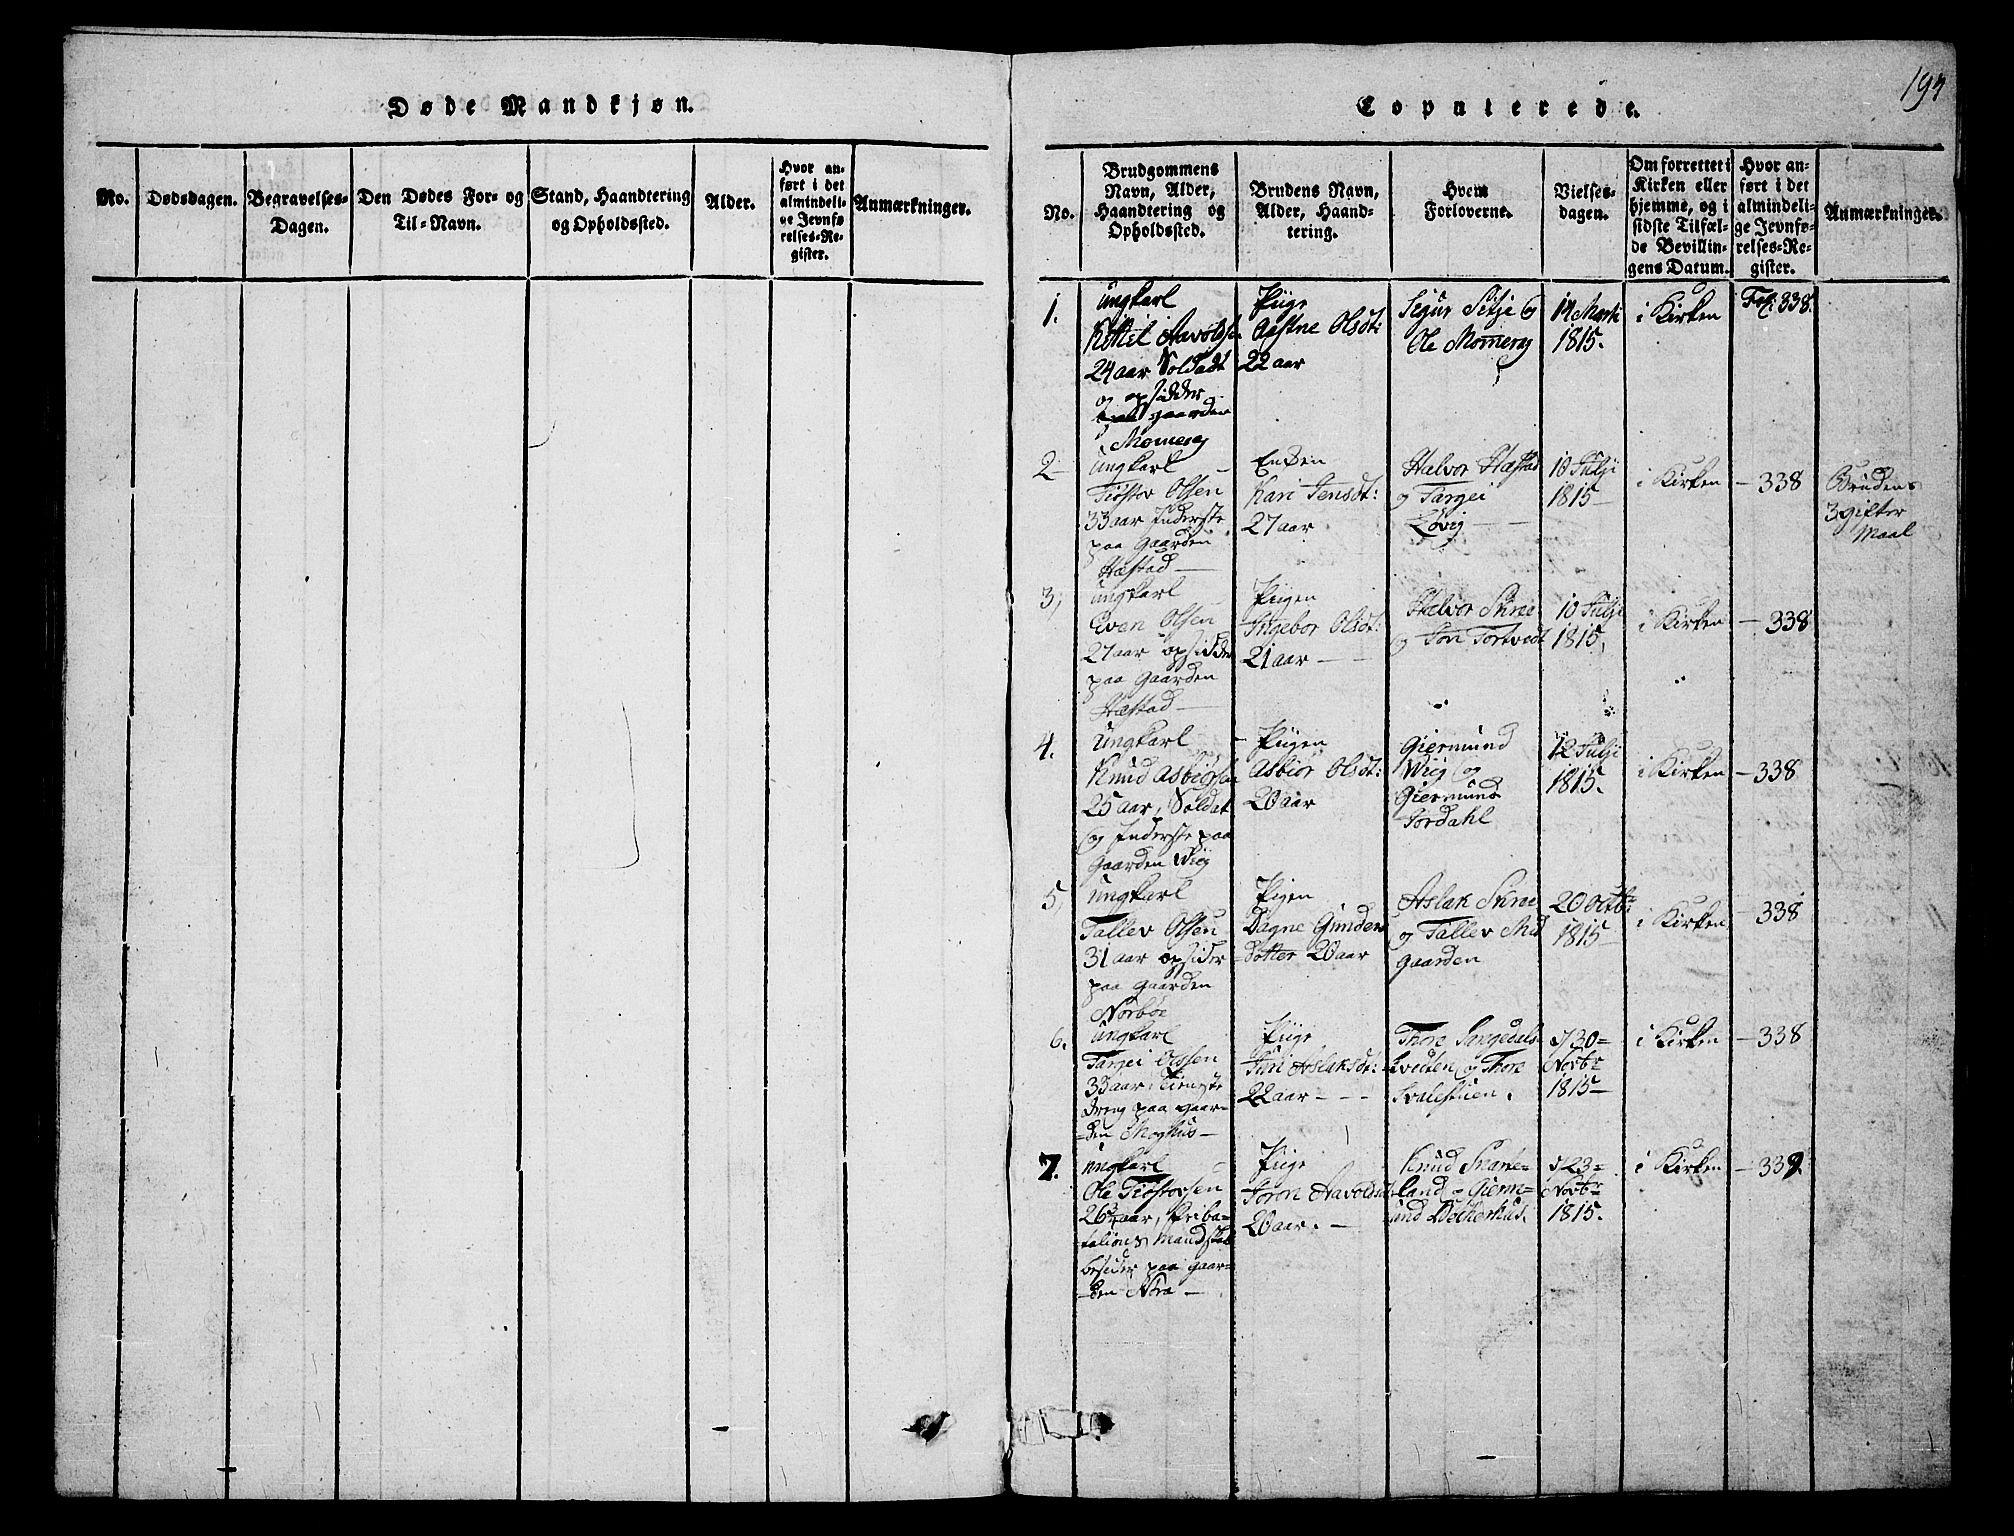 Døde Mandkjøn.
No.
Dødsdagen.
Begravelses-
Dagen.
Den Dødes For- og
Til-Navn.
Stand, Haandtering
og Opholdssted.
Alder.
Hvor an-
ført i det
almindeli-
ge Jevnfø-
relses-Re-
gister.
Anmærkninger.
Copulerede.
No.
Brudgommens
Navn, Alder,
Haandtering og
Opholdssted.
Brudens Navn,
Alder, Haand-
tering.
Hvem
Forloverne.
Vielses-
dagen.
Om forrettet i
Kirken eller
hjemme, og i
sidste Tilfæl-
de Bevillin-
gens Datum.
Hvor an-
ført i det
almindeli-
ge Jevnfø-
relses-Re-
gister.
Anmærkninger.
1.
ungkarl
Kettel Aavoldse
24 aar Soldadt
og opsidder
gaarden
Momerag
Piige
Aastne Olsdt:
22 aar
Sigur Sitje og
Ole Momerag
Marti
1815.
i Kirken
Fol: 338.
2
ungkarl
Tiøstov Olsen
33 aar Inderste
paa Gaarden
Hæstad
Enken
Kari Jensdt:
27 aar
Halvor Hæstad
og Targei
Løvig
10 Julji
1815
i Kirken
338
Brudens
3 gifter
Maal
3,
ungkarl
Even Olsen
27 aar opsidder
paa Gaarden
Hæstad
Piigen
Ingebor Olsdt:
21 aar
Halvor Skree
og Jon Tortvedt
10 Julji
1815,
i Kirken
338
4.
Ungkarl
Knud Asbiørsen
25 aar, Soldat
og Inderste paa
Gaarden Wiig
Piigen
Asbiør Olsdt:
20 aar
Giermund
Wiig og
Giermund
Jordahl
12 Julji
1815.
i Kirken
338
5,
ungkarl
Tallev Olsen
31 aar opsider
paa Gaarden
Norbøe
Pigen
Dagne Gunders
dotter 20 aar
Aslak Skree
og Tallev Mid
Gaarden
20 Octbr:
1815
i Kirken
338
6.
ungkarl
Targei Olsen
33 aar, Tieneste
dreng paa gaar-
den Moghus
Piige
Juri Aslaksdt:
22 aar
Thore Sangedals
kvedten og Thore
Svalestuen.
d 30
Novbr
1815
i Kirken
338
7.
ungkarl
Ole Tiøstovsen
26 aar,
talions Mandskab
besider paa gaar-
den Nora
Piige
Joron Aavoldsdt
20 aar.
Knud Snarte-
land og Gierm-
und Løcherhus.
d 23
Novbr
1815.
i Kirken
339